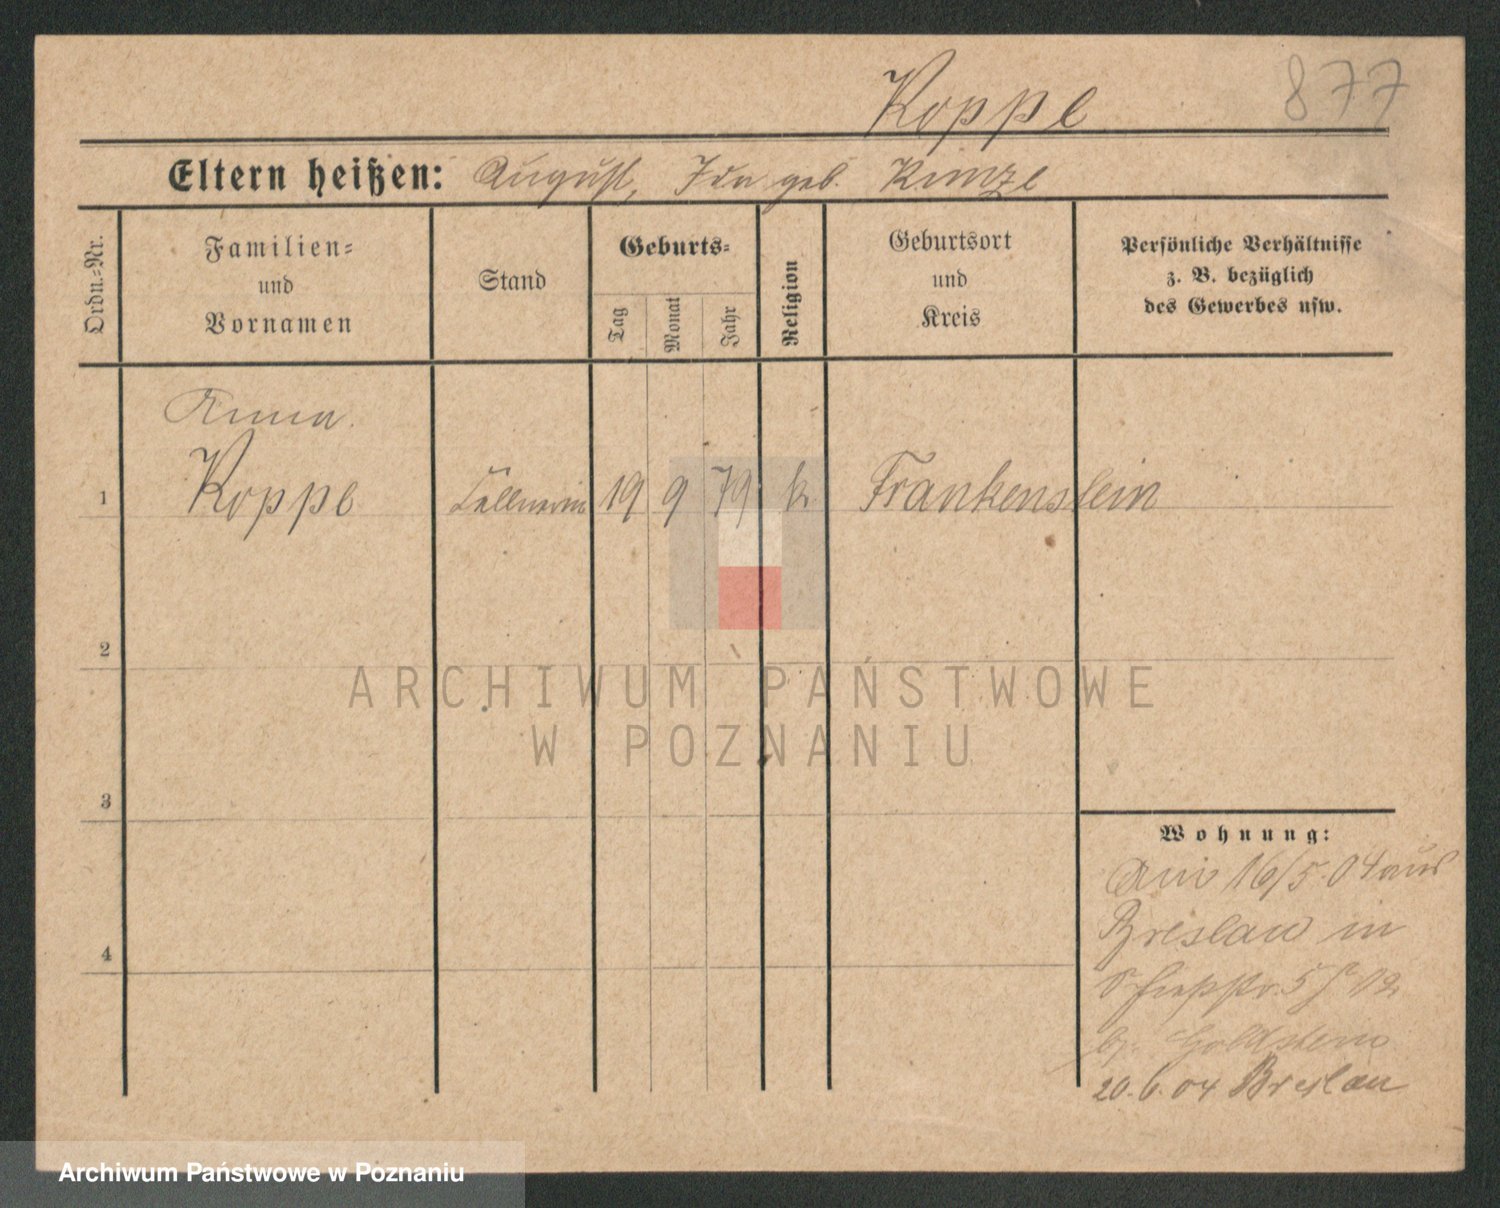 Koppe 877
Eltern heißen: August, Ida geb. Kunze
Ordn.-Nr.
Familien-
und
Vornamen
Stand
Geburts-
Tag
Monat
Jahr
Religion
Geburtsort
und
Kreis
Persönliche Verhältnisse
z. B. bezüglich
des Gewerbes usw.
Anna
1 Koppe Kellnerin 19 9 79 k Frankenstein
2
3
4
Wohnung:
Am 16/5.04 aus
Breslau in
Goldstein
20.6.04 Breslau
ARCHIWUM PAŃSTWOWE
W POZNANIU
Archiwum Państwowe w Poznaniu